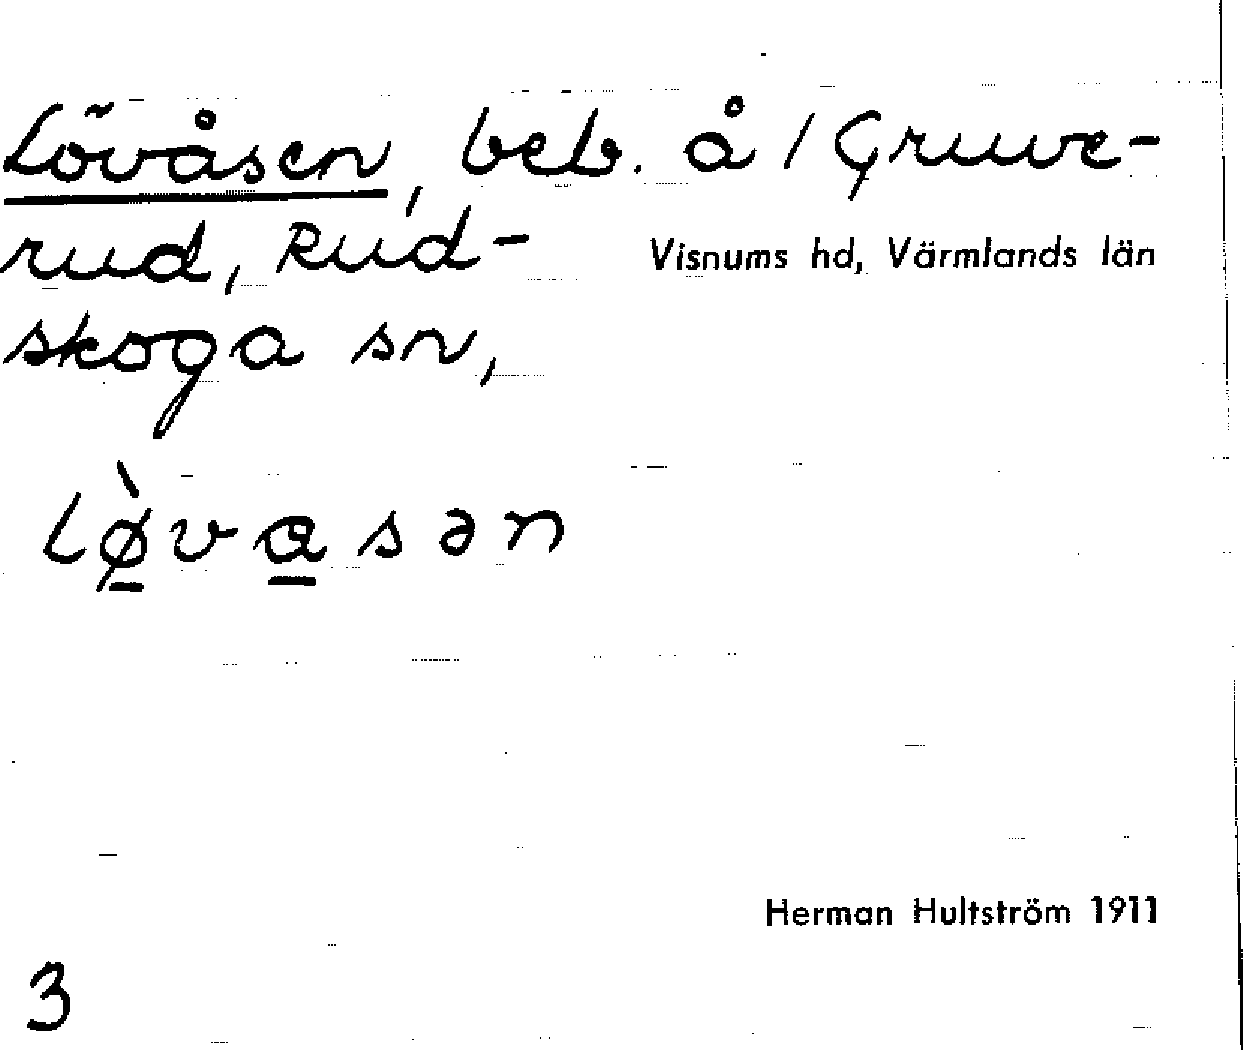 Lövåsen, beb. å / Gruve-
rud, Rud-
skoga sn,
Visnums hd, Värmlands län
lø̠̀va̠sən
Herman Hultström 1911
3